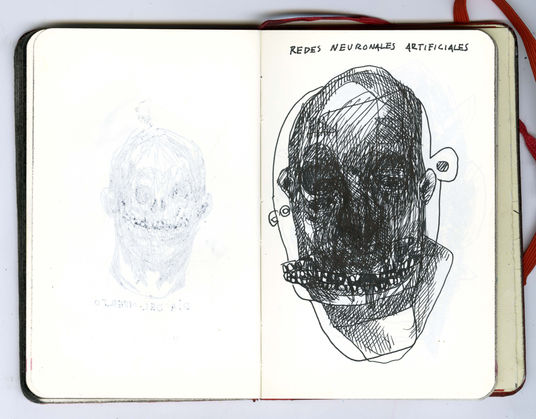 REDES NEURONALES ARTIFICIALES